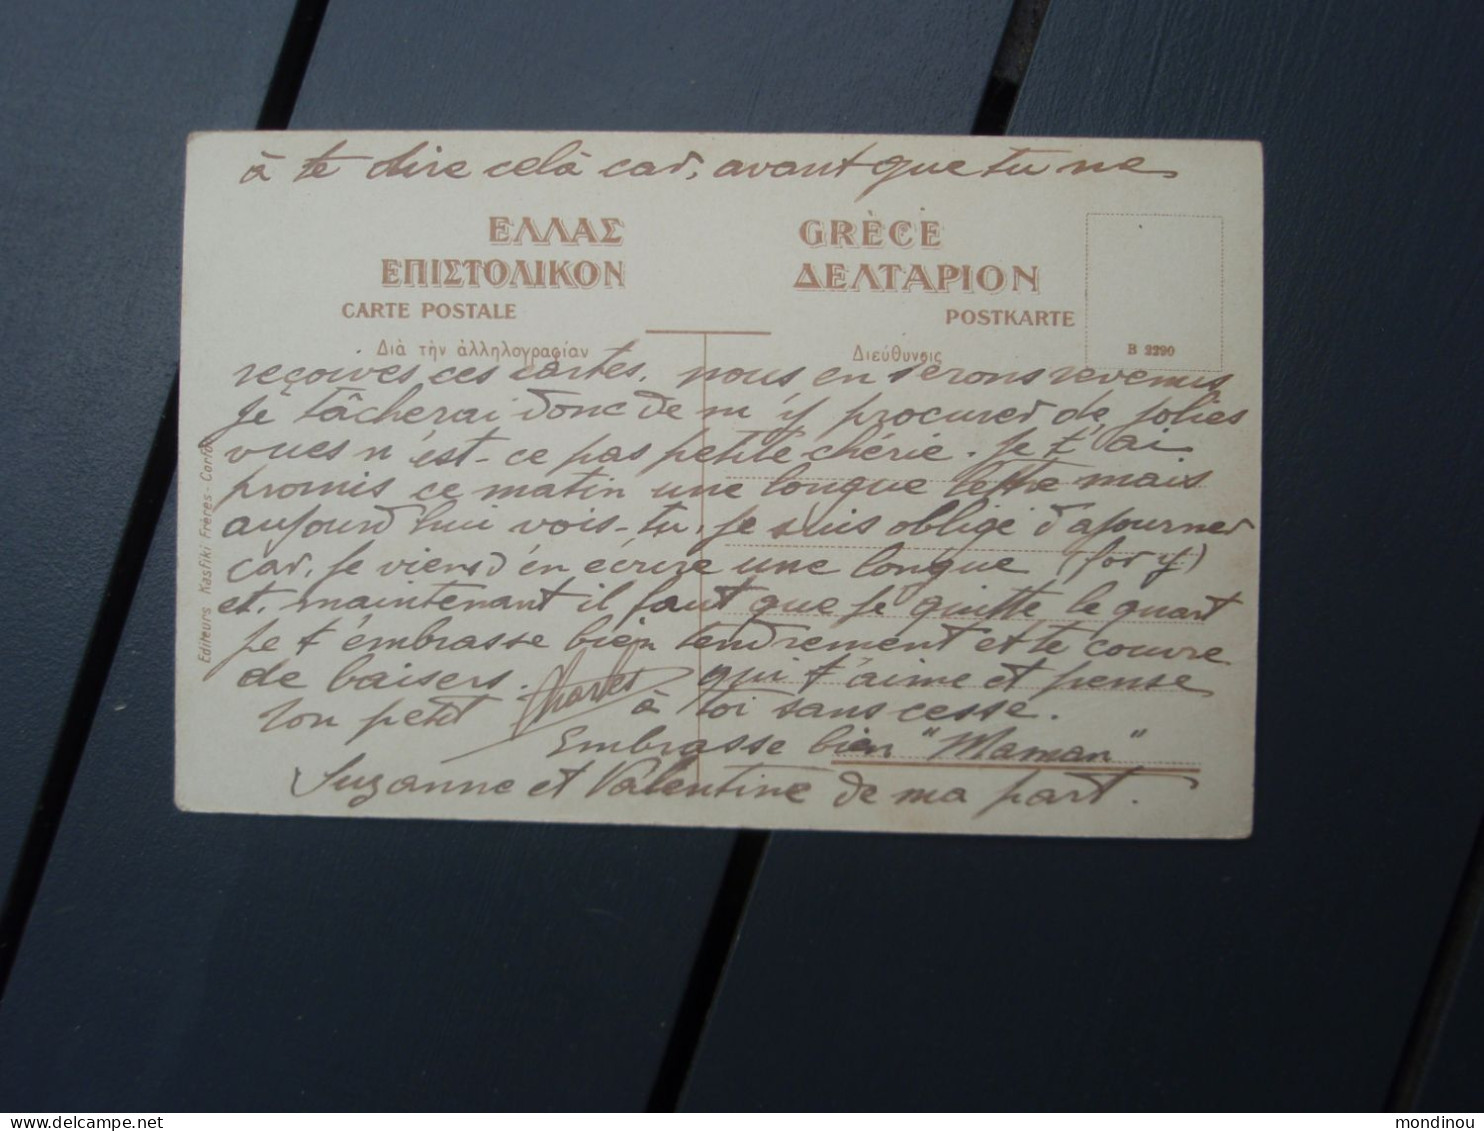 à te dire celà car, avant que tu ne
ΕΛΛΑΣ GRÈCE
ΕΠΙΣΤΟΛΙΚΟΝ ΔΕΛΤΑΡΙΟΝ
CARTE POSTALE POSTKARTE
Διὰ τὴν ἀλληλογραφίαν Διεύθυνσις B 2290
reçoives ces cartes, nous en serons revenus
Je tâcherai donc de m'y procurer de jolies
vues n'est-ce pas petite chérie. Je t'ai
promis ce matin une longue lettre mais
aujourd'hui vois-tu, je suis obligé d'ajourner
car, je viens d'en écrire une longue (for y)
et, maintenant il faut que je quitte le quart
Je t'embrasse bien tendrement et te couvre
de baisers.
Ton petit Charles qui t'aime et pense
à toi sans cesse.
Embrasse bien "Maman"
Suzanne et Valentine de ma part.
Editeurs Kasfiki Frères - Corfou
www.delcampe.net
mondinou